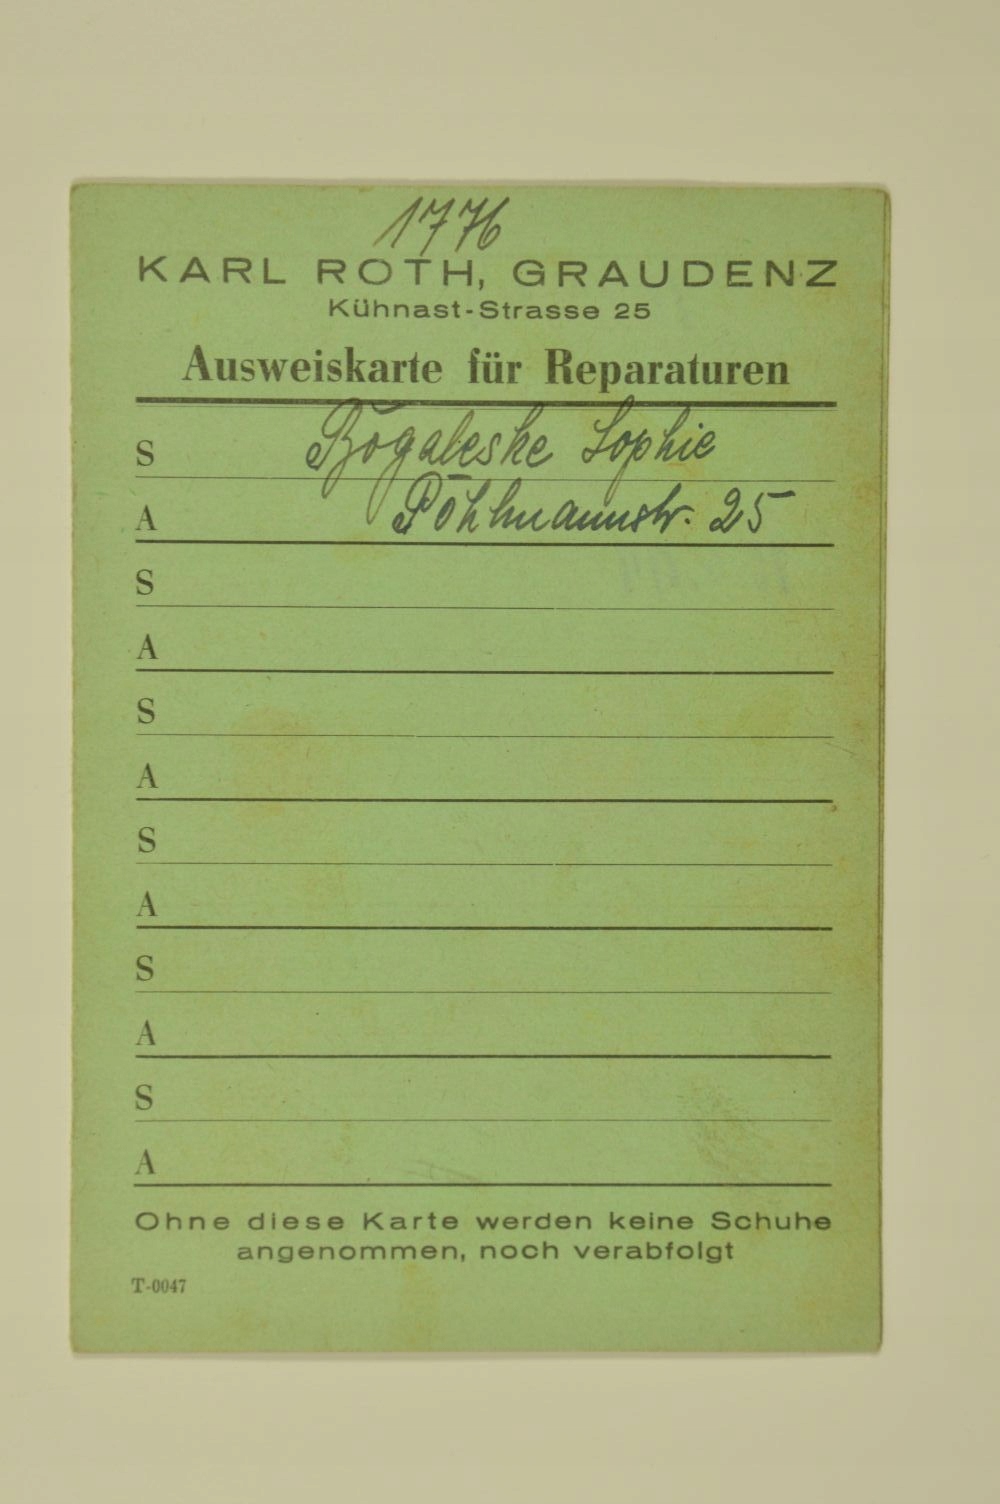 1776
KARL ROTH, GRAUDENZ
Kühnast-Strasse 25
Ausweiskarte für Reparaturen
S Bogaleske Sophie
A Pöhlmannstr. 25
S
A
S
A
S
A
S
A
S
A
Ohne diese Karte werden keine Schuhe
angenommen, noch verabfolgt
T-0047